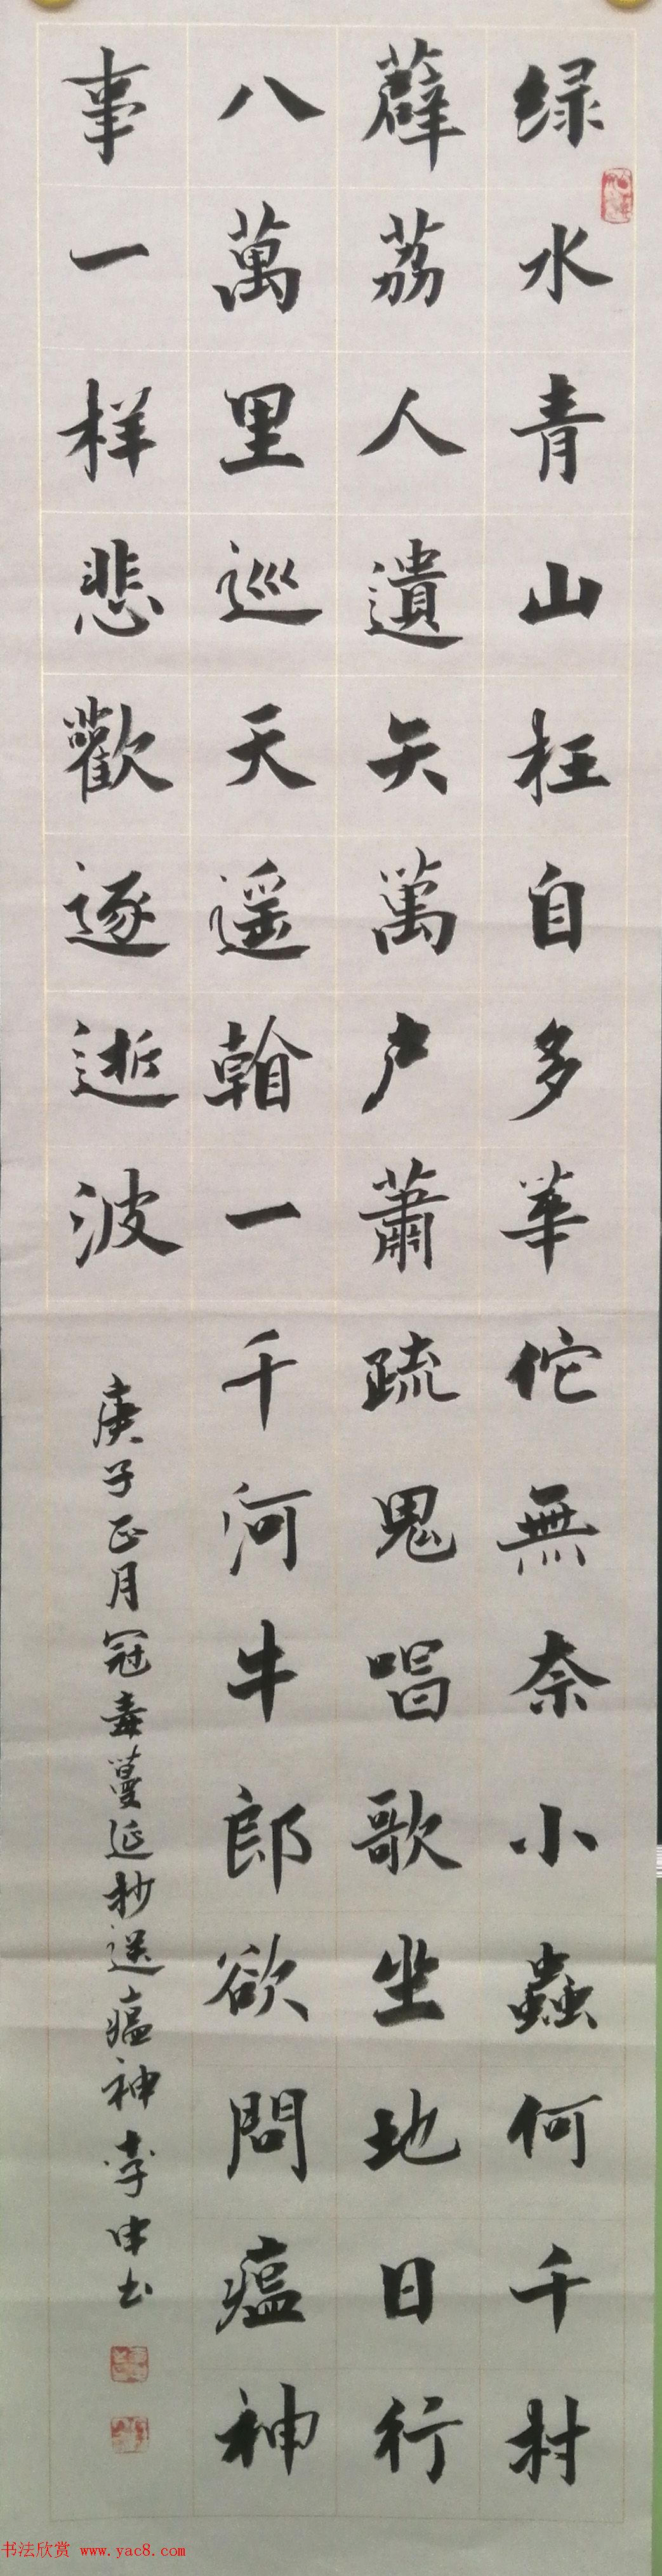 绿水青山枉自多華佗無奈小蟲何千村
薜荔人遺矢萬户蕭疏鬼唱歌坐地日行
八萬里巡天遥看一千河牛郎欲問瘟神
事一样悲歡逐逝波
庚子正月冠毒蔓延抄送瘟神李申书
书法欣赏 www.yac8.com